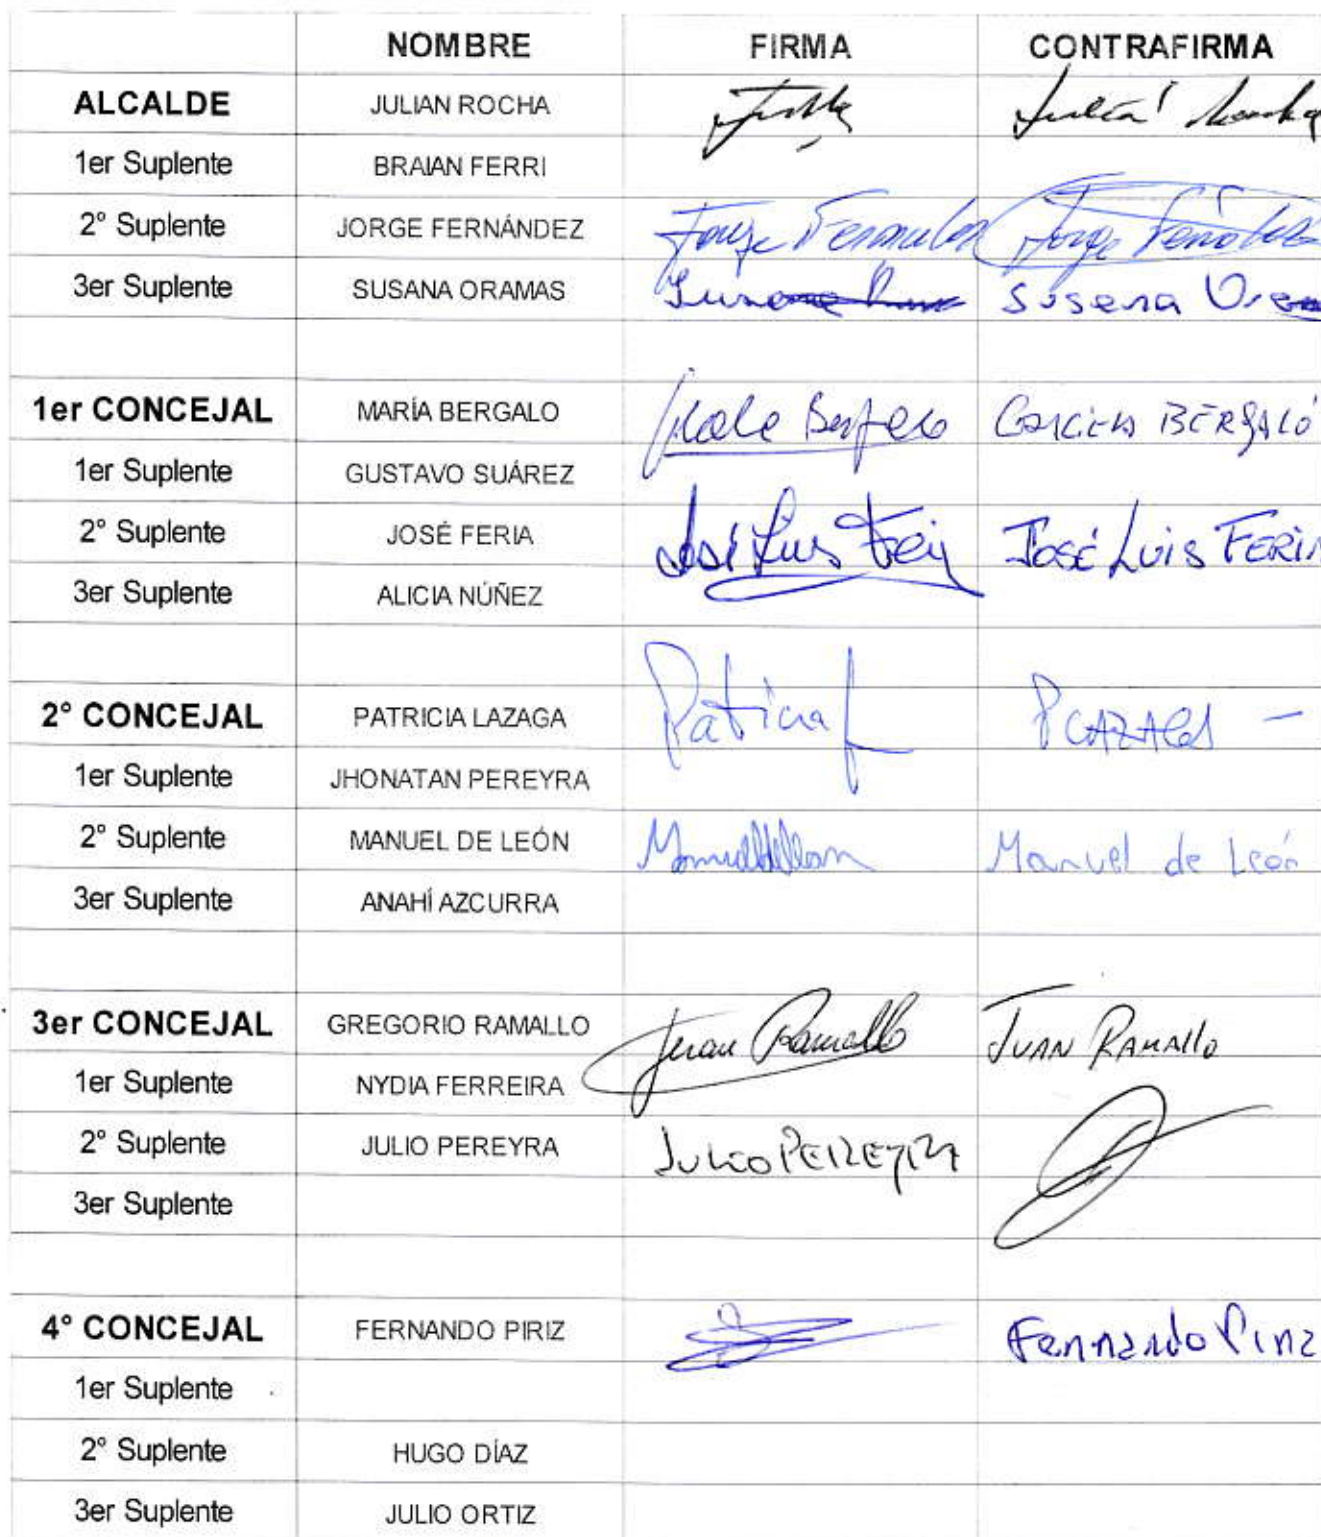 NOMBRE FIRMA CONTRAFIRMA
ALCALDE JULIAN ROCHA Julián Rocha
1er Suplente BRAIAN FERRI
2° Suplente JORGE FERNÁNDEZ Jorge Fernandez Jorge
3er Suplente SUSANA ORAMAS Susana
1er CONCEJAL MARÍA BERGALO BERGALÓ
1er Suplente GUSTAVO SUÁREZ
2° Suplente JOSÉ FERIA José Luis José Luis FERIA
3er Suplente ALICIA NÚÑEZ
2° CONCEJAL PATRICIA LAZAGA Patricia L
1er Suplente JHONATAN PEREYRA
2° Suplente MANUEL DE LEÓN Manuel de León
3er Suplente ANAHÍ AZCURRA
3er CONCEJAL GREGORIO RAMALLO Juan Ramallo JUAN RAMAllo
1er Suplente NYDIA FERREIRA
2° Suplente JULIO PEREYRA JULIO PEREYRA
3er Suplente
4° CONCEJAL FERNANDO PIRIZ Fernando Piriz
1er Suplente
2° Suplente HUGO DÍAZ
3er Suplente JULIO ORTIZ